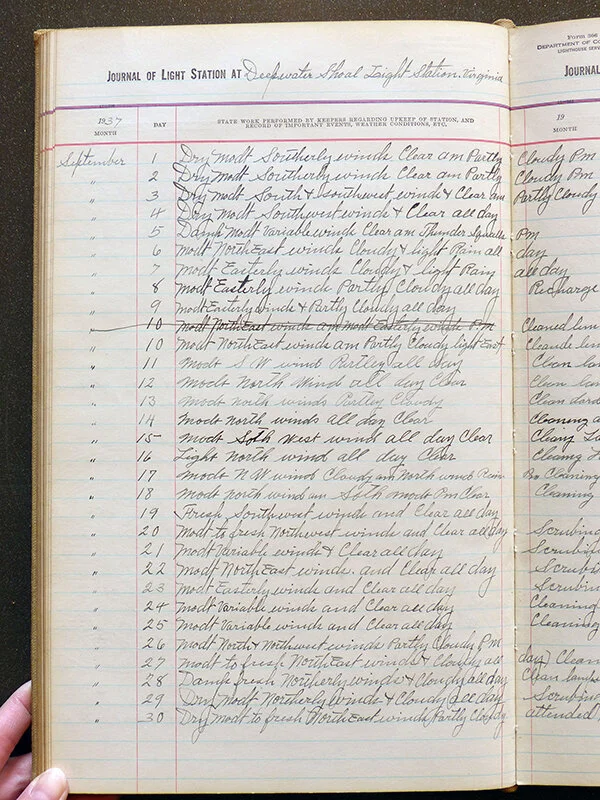 Form 306
DEPARTMENT OF CO
LIGHTHOUSE SERV
JOURNAL OF LIGHT STATION AT Deepwater Shoal Light Station. Virginia
JOURNAL
1937
MONTH
DAY
STATE WORK PERFORMED BY KEEPERS REGARDING UPKEEP OF STATION, AND
RECORD OF IMPORTANT EVENTS, WEATHER CONDITIONS, ETC.
19
MONTH
September 1 Dry modt Southerly winds Clear am Partly Cloudy Pm
" 2 Dry modt Southerly winds Clear am Partly Cloudy Pm
" 3 Dry modt South & southwest winds & Clear am Partly Cloudy
" 4 Dry modt Southwest winds & Clear all day
" 5 Damp modt Variable winds Clear am Thunder Squalls Pm
" 6 modt NorthEast winds Cloudy & light Rain all day
" 7 modt Easterly winds Cloudy & light Rain all day
" 8 modt Easterly winds Partly Cloudy all day Recharge
" 9 modt Easterly winds & Partly Cloudy all day
" 10 modt NorthEast winds am modt Easterly winds Pm Cleaned len
" 10 modt NorthEast winds am Partly Cloudy light East Cleande len
" 11 modt S W wind Partley all day Clean lan
" 12 modt north wind all day Clear Clean lan
" 13 modt north winds Partley Cloudy Clean
" 14 modt north winds all day Clear Cleaning a
" 15 modt Soth West wind all day Clear Cleang La
" 16 Light north wind all day Clear Cleang L
" 17 modt N W wind Cloudy am North wind Rain Pm Cleaning
" 18 modt north wind am Soth modt Pm Clear Cleaning
" 19 Fresh Southwest winds and Clear all day
" 20 Modt to fresh Northwest winds and Clear all day Scrubing
" 21 Modt Variable winds & Clear all day Scrubing
" 22 Modt NorthEast winds. and Clear all day Scrubing
" 23 Modt Easterly winds and Clear all day Scrubing
" 24 Modt Variable winds and Clear all day Cleaning
" 25 Modt Variable winds and Clear all day Cleaning
" 26 Modt North & Northwest winds Partly Cloudy Pm
" 27 modt to fresh NorthEast winds & Cloudy all day) Clean
" 28 Damp fresh Northerly winds & Cloudy all day Clean lamps
" 29 Dry Modt Northerly winds & Cloudy all day Scrubing
" 30 Dry modt to fresh NorthEast winds Partly Cloudy attended